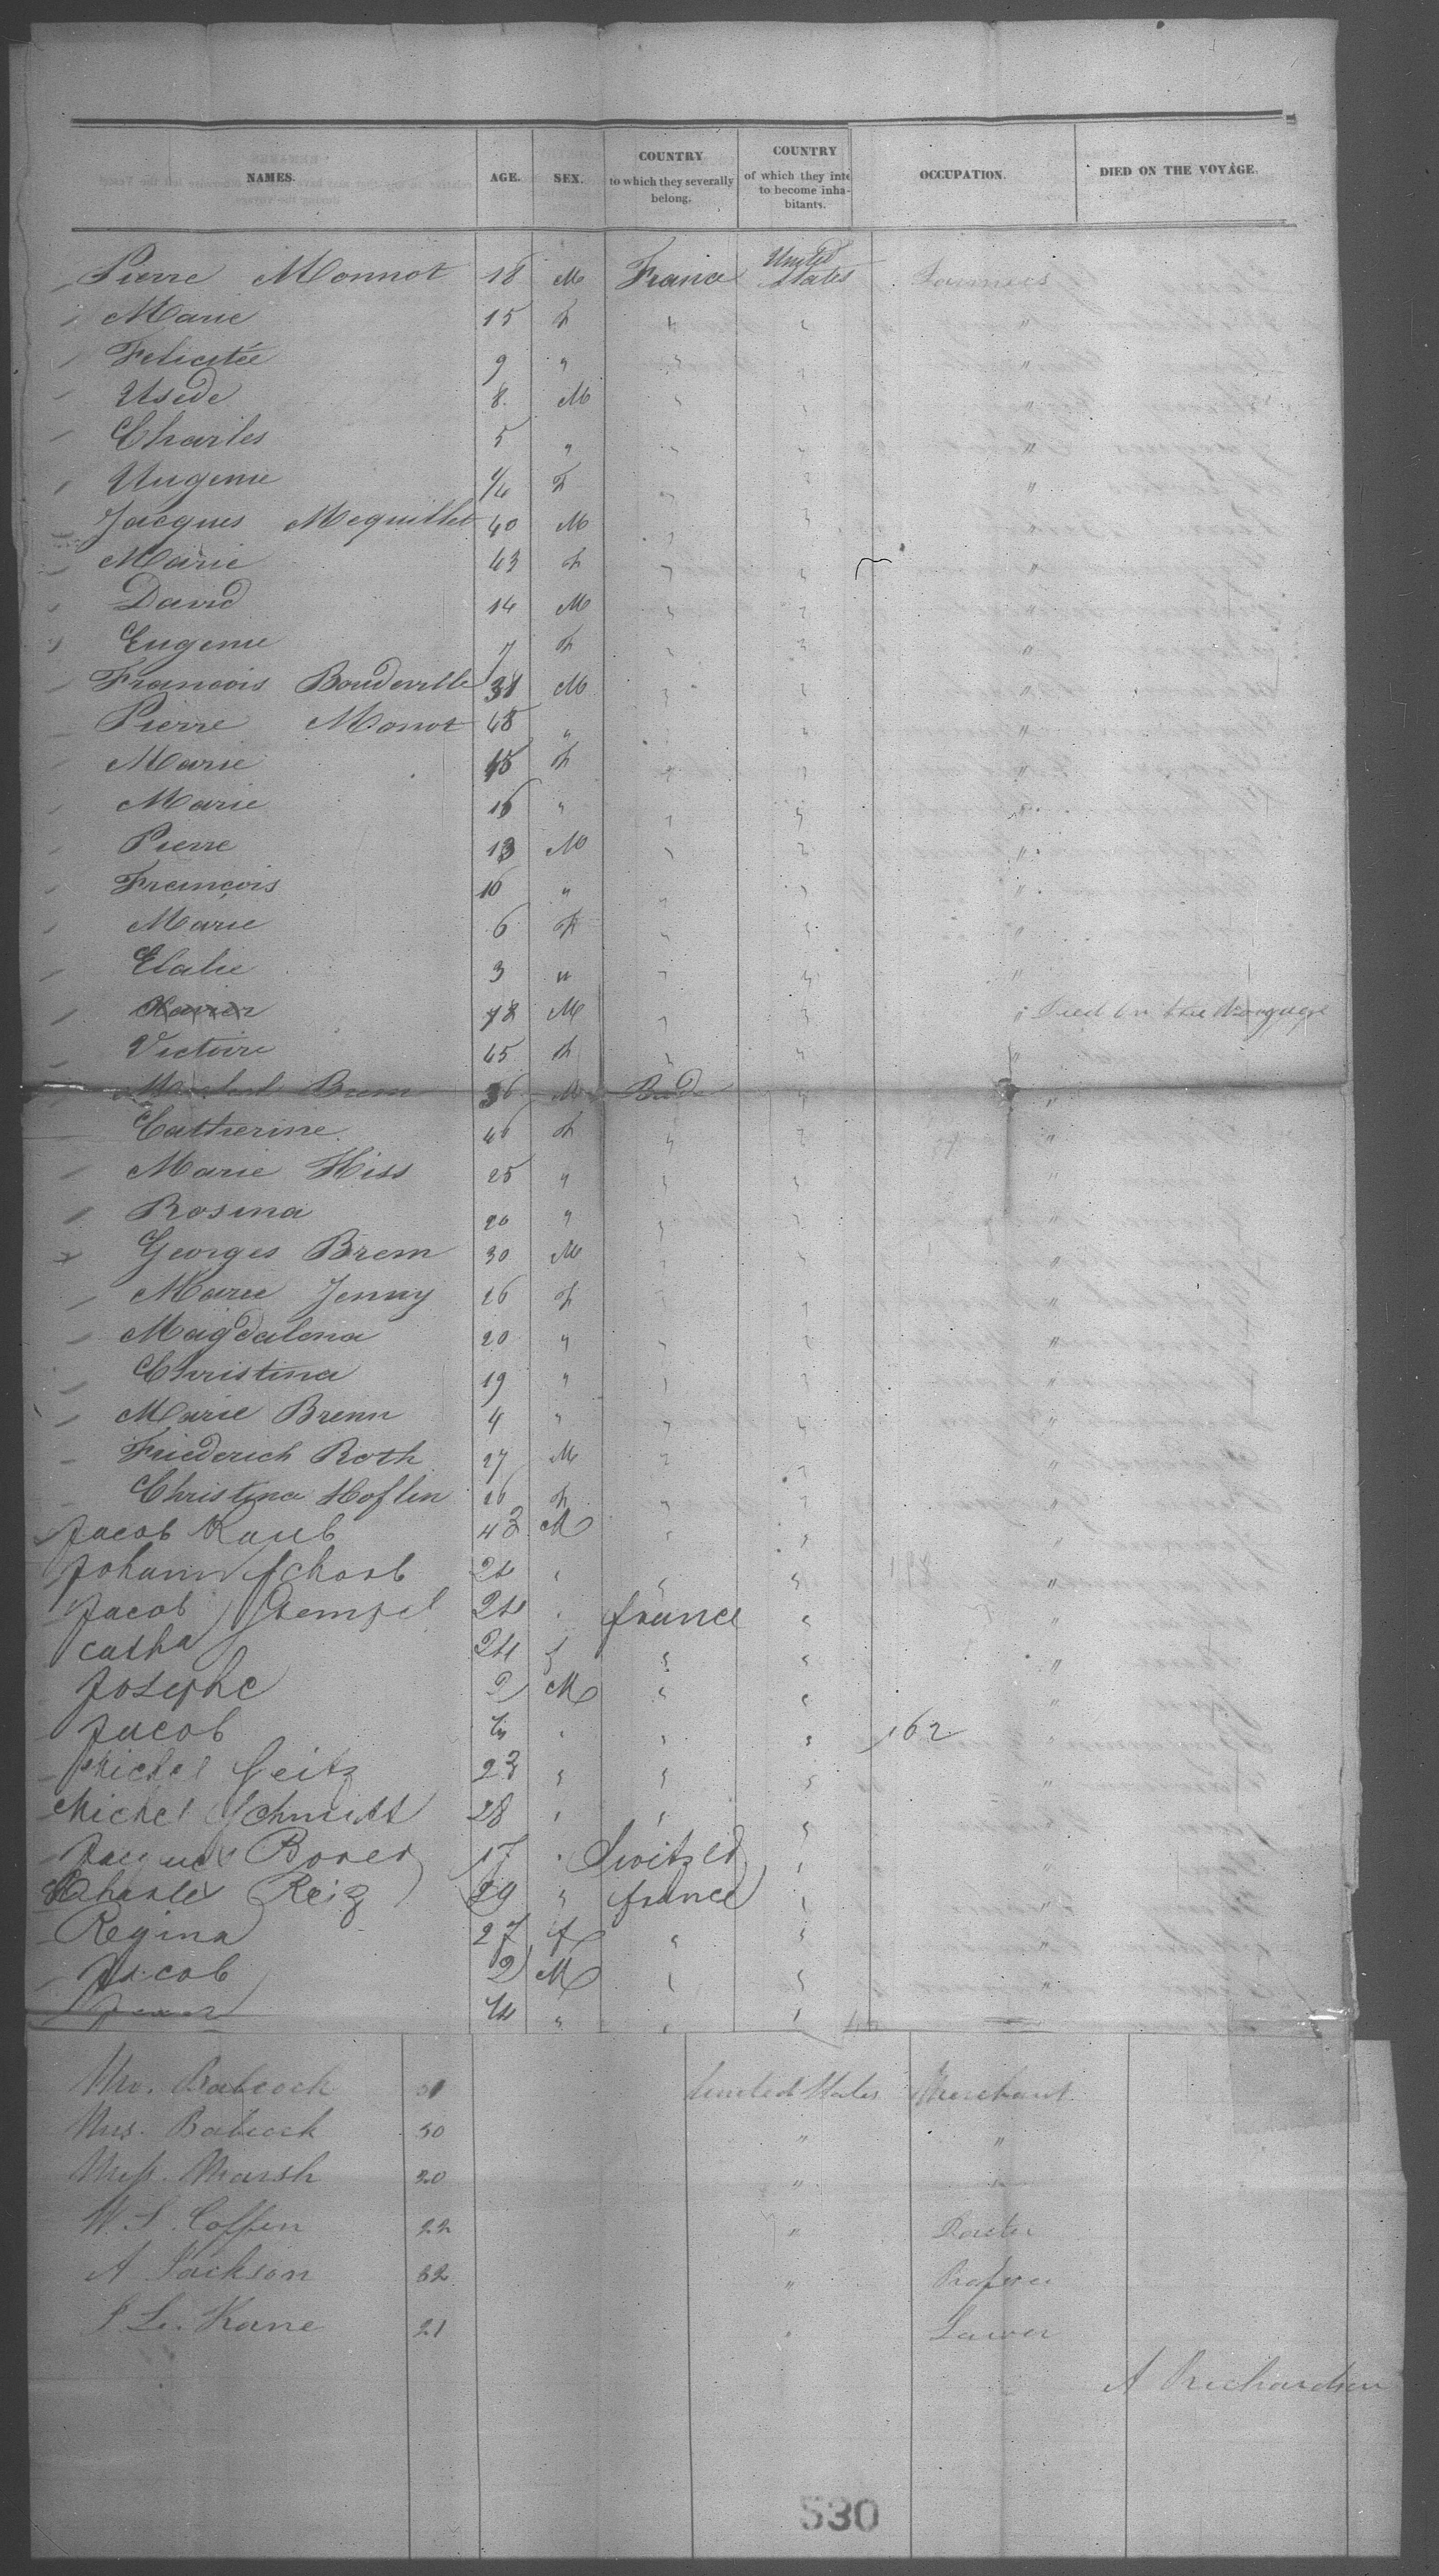 NAMES. AGE. SEX. COUNTRY to which they severally belong. COUNTRY of which they inte to become inha- bitants. OCCUPATION. DIED ON THE VOYAGE.
Pierre Monnot 18 M France United States Farmers
Marie 15 F " " "
Felicitée 9 " " " "
Usede 8 M " " "
Charles 5 " " " "
Eugenie F " " "
Jacques Mequillet 40 M " " "
Marie 43 F " " "
David 14 M " " "
Eugenie 7 F " " "
Francois Boudeville 31 M " " "
Pierre Monot 48 " " " "
Marie F " " "
Marie 16 " " " "
Pierre 13 M " " "
François 10 " " " "
Marie 6 F " " "
Elalie 3 " " " "
Xavier 78 M " " " Died on the Voyage
Victoire 45 F " " "
36 M Bade " "
Catherine F " " "
Marie Hiss 25 " " " "
Rosina 20 " " " "
Georges Brem 30 M " " "
Marie Jenny 26 F " " "
Magdalena 20 " " " "
Christina 19 " " " "
Marie Brenn 4 " " " "
Friederich Roth 27 M " " "
Christina Hoflin 26 F " " "
Jacob Raub 43 M " " "
Johann Schorb 24 " " " "
Jacob Stempfel 24 " france " "
Catha 24 f " " "
Josephe 2 M " " "
Jacob " " " 162 "
Michel Seitz 23 " " " "
Michel Schmitt 28 " " " "
Jacques Borer 17 " Switzld " "
Charles Reiz 29 " france " "
Regina 27 f " " "
Jacob 2 M " " "
" " "
Mr. Babcock 51 United States Merchant
Mrs. Babcock 50 " "
Miss. Marsh 20 " "
W. S. Coffin 22 " Docter
A Jackson 32 "
S L. Kane 21 " Lawer
A Richardson
530